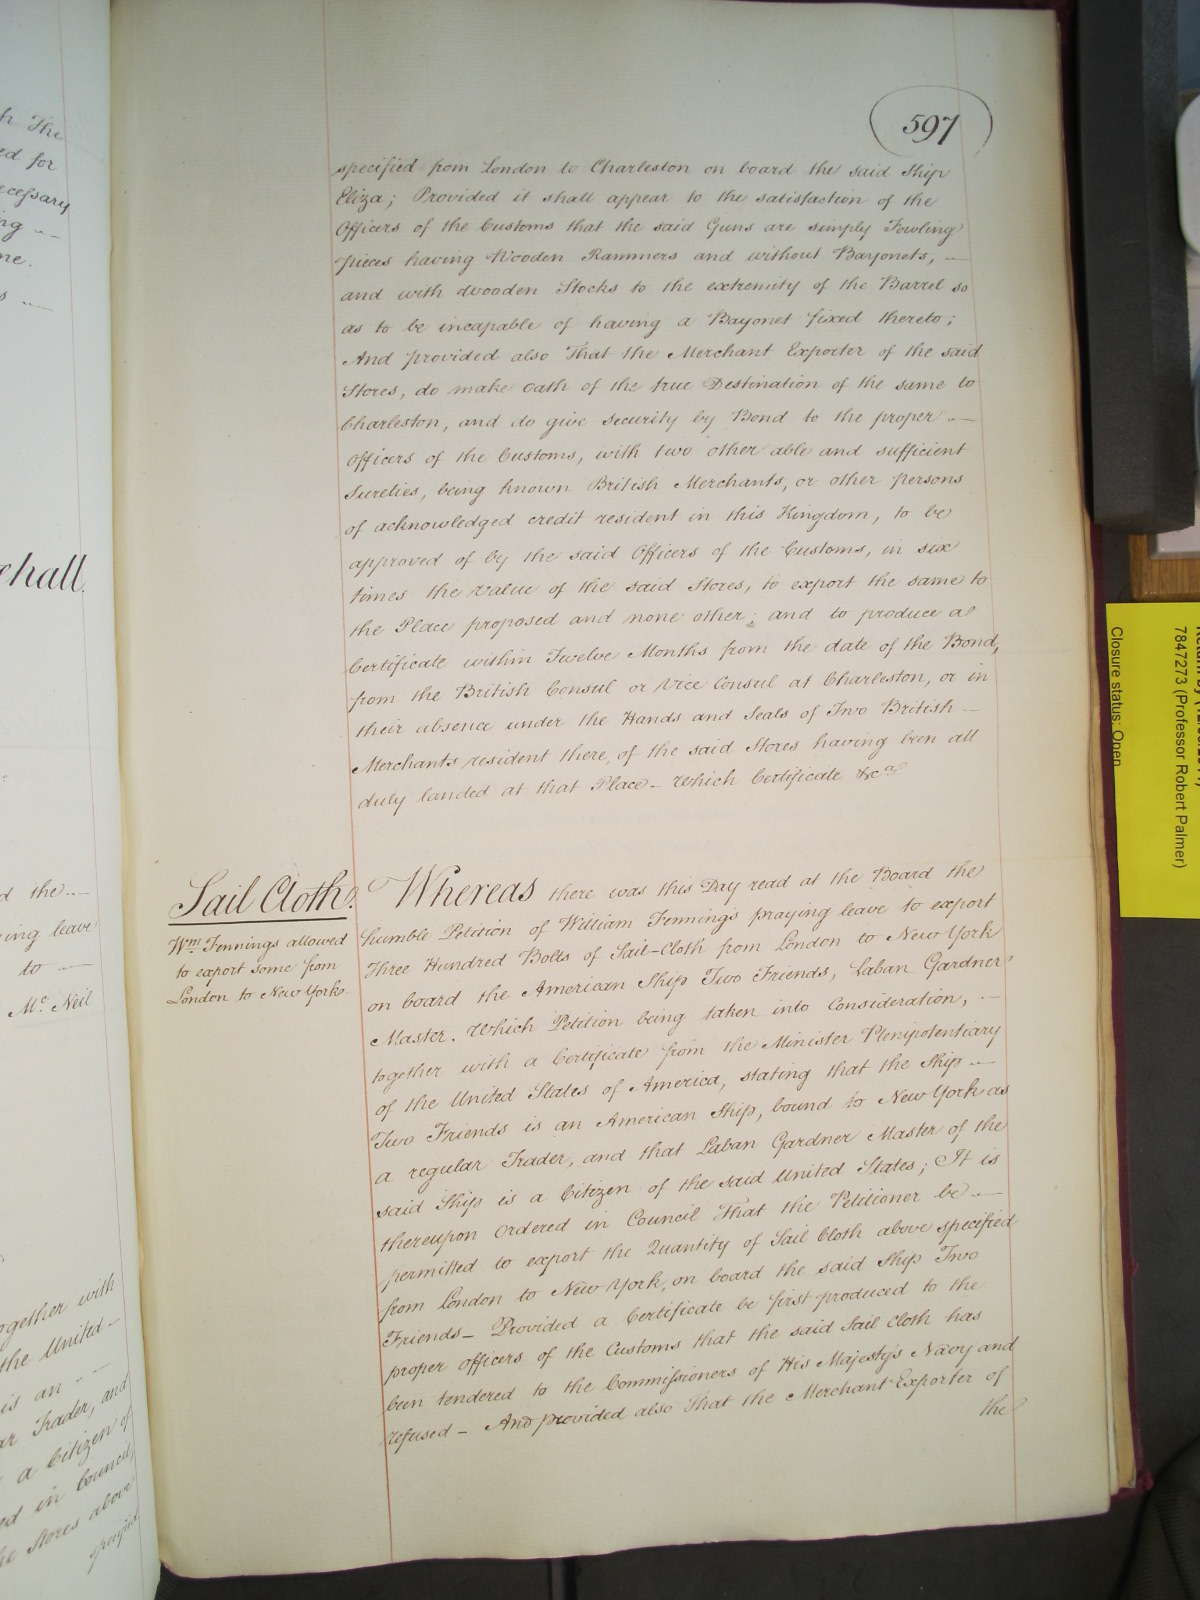 h The
ed for
ecessary
ng
me.
s
ehall.
d the
ing leave
to
Mc. Neil
ogether with
the United
is an
ar Trader, and
a Citizen of
ed in Council,
he Stores above
specified
597
specified from London to Charleston on board the said Ship
Eliza; Provided it shall appear to the satisfaction of the
Officers of the Customs that the said Guns are simply Fowling
pieces having Wooden Rammers and without Bayonets, —
and with wooden Stocks to the extremity of the Barrel so
as to be incapable of having a Bayonet fixed thereto;
And provided also That the Merchant Exporter of the said
Stores, do make Oath of the true Destination of the same to
Charleston, and do give security by Bond to the proper —
Officers of the Customs, with two other able and sufficient
Sureties, being known British Merchants, or other persons
of acknowledged credit resident in this Kingdom, to be
approved of by the said Officers of the Customs, in six
times the value of the said Stores, to export the same to
the Place proposed and none other; and to produce a
Certificate within Twelve Months from the date of the Bond,
from the British Consul or Vice Consul at Charleston, or in
their absence under the Hands and Seals of Two British —
Merchants resident there, of the said Stores having been all
duly landed at that Place — Which Certificate &ca
Sail Cloth.
Wm. Jennings allowed
to export some from
London to New York.
Whereas there was this Day read at the Board the
humble Petition of William Jennings praying leave to export
Three Hundred Bolts of Sail-Cloth from London to New York
on board the American Ship Two Friends, Laban Gardner
Master. Which Petition being taken into Consideration, —
together with a Certificate from the Minister Plenipotentiary
of the United States of America, stating that the Ship —
Two Friends is an American Ship, bound to New York as
a regular Trader, and that Laban Gardner Master of the
said Ship is a Citizen of the said United States; It is
thereupon Ordered in Council That the Petitioner be —
permitted to export the Quantity of Sail Cloth above specified
from London to New York, on board the said Ship Two
Friends — Provided a Certificate be first produced to the
proper officers of the Customs that the said Sail Cloth has
been tendered to the Commissioners of His Majesty's Navy and
refused — And provided also That the Merchant Exporter of
the
7847273 (Professor Robert Palmer)
Closure status: Open